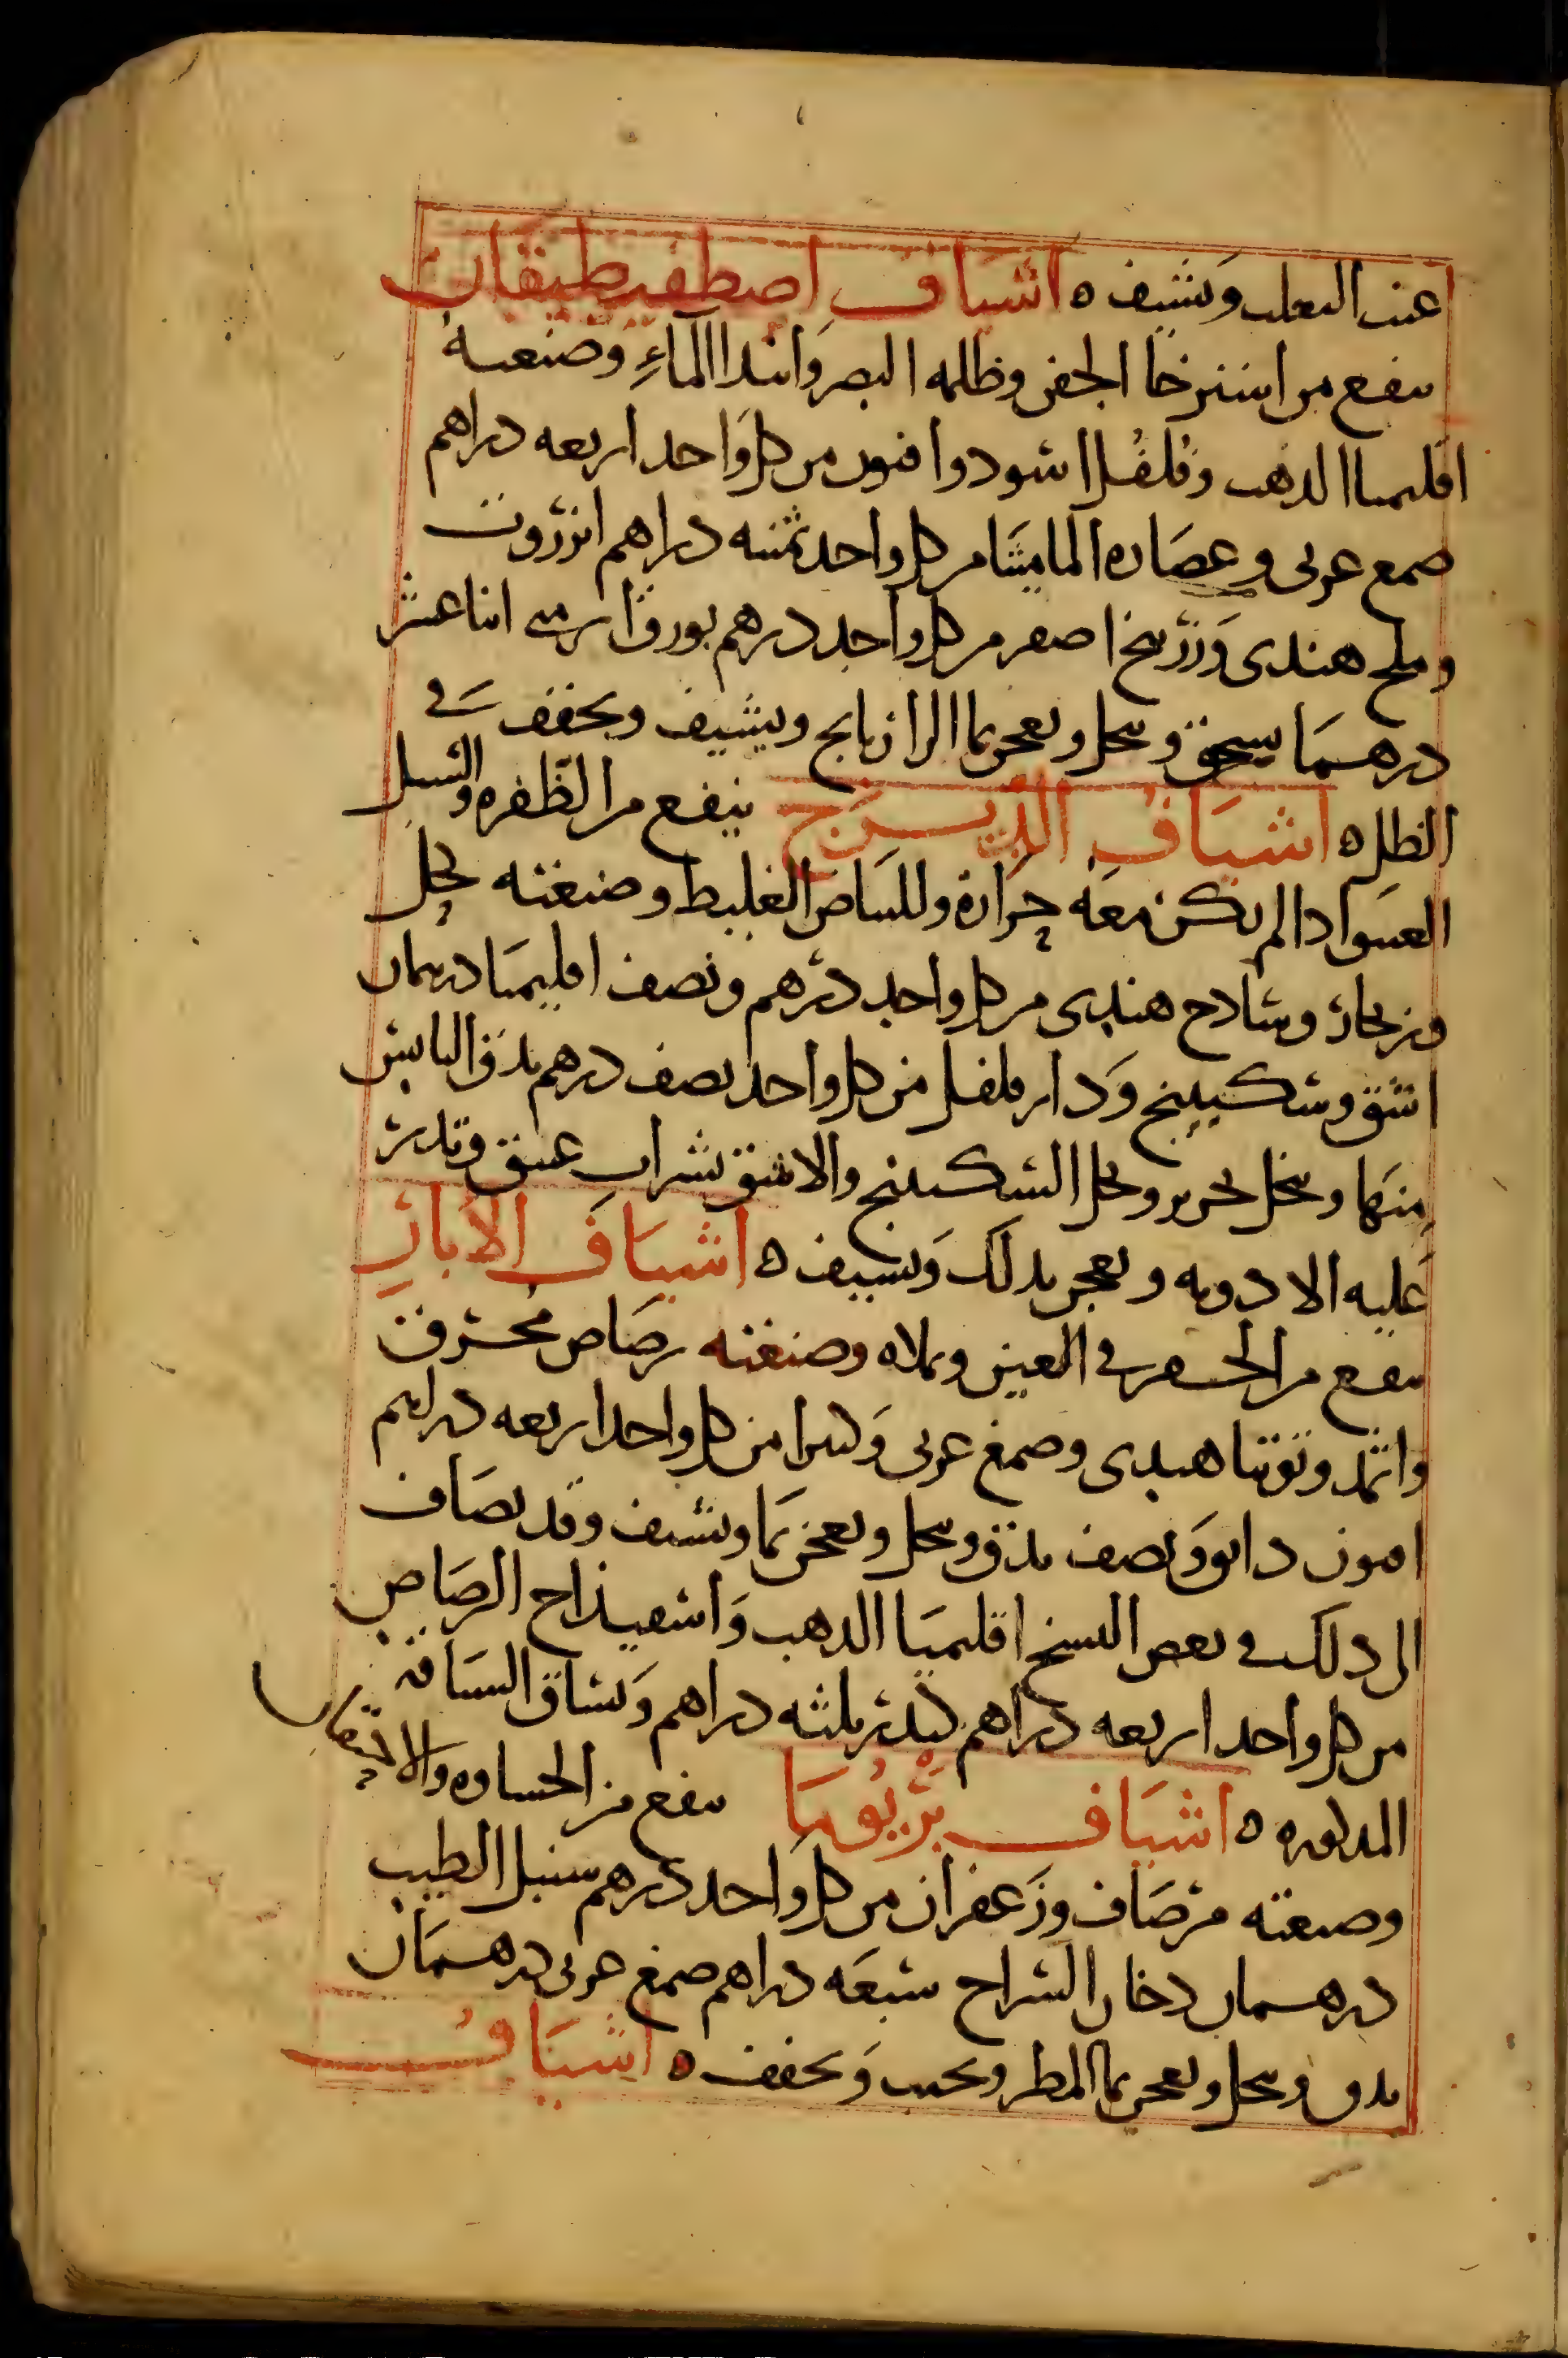 عنب الثعلب ويشيف ه اشياف اصطفيطيقان
ينفع من استرخا الجفن وظلمه البصر وابتدا المآءِ وصنعته
اقليميا الذهب وفلفل اسود وافيون من كل واحد اربعه دراهم
صمغ عربى وعصاره الماميثا من كل واحد ثمنيه دراهم انزروت
وملح هندى وزرنيخ اصفر من كل واحد درهم بورق ارمنى اثنا عشر
درهما يسحق وينخل ويعجن بما الرازيانج ويشيف ويجفف فى
الظل ه اشياف الديزج ينفع من الظفره والسبل
العتيق اذا لم يكن معه حرارة وللبياض الغليظ وصنعته
وزنجار وشادنج هندى من كل واحد درهم ونصف اقليميا درهمان
اشق وسكبينج ودار فلفل من كل واحد نصف درهم يدق اليابس
منها وينخل بحرير ويحل السكبينج والاشق بشراب عتيق وتذر
عليه الادويه ويعجن بذلك ويشيف ه اشياف الابار
ينفع من الحفر فى العين ويملاه وصنعته رصاص محترق
واثمد وتوتيا هندى وصمغ عربى وكثيرا من كل واحد اربعه دراهم
افيون دانق ونصف يدق وينخل ويعجن بما ويشيف وقد يضاف
الى ذلك فى بعض النسخ اقليميا الذهب واسفيذاج الرصاص
من كل واحد اربعه دراهم كندر ثلثه دراهم وتساق السياقه
المذكوره ه اشياف ينفع من الجساوه والانتفاخ
وصنعته مر صاف وزعفران من كل واحد درهم سنبل الطيب
درهمان دخان السراج سبعه دراهم صمغ عربى درهمان
يدق وينخل ويعجن بما المطر ويحبب ويجفف ه اشياف